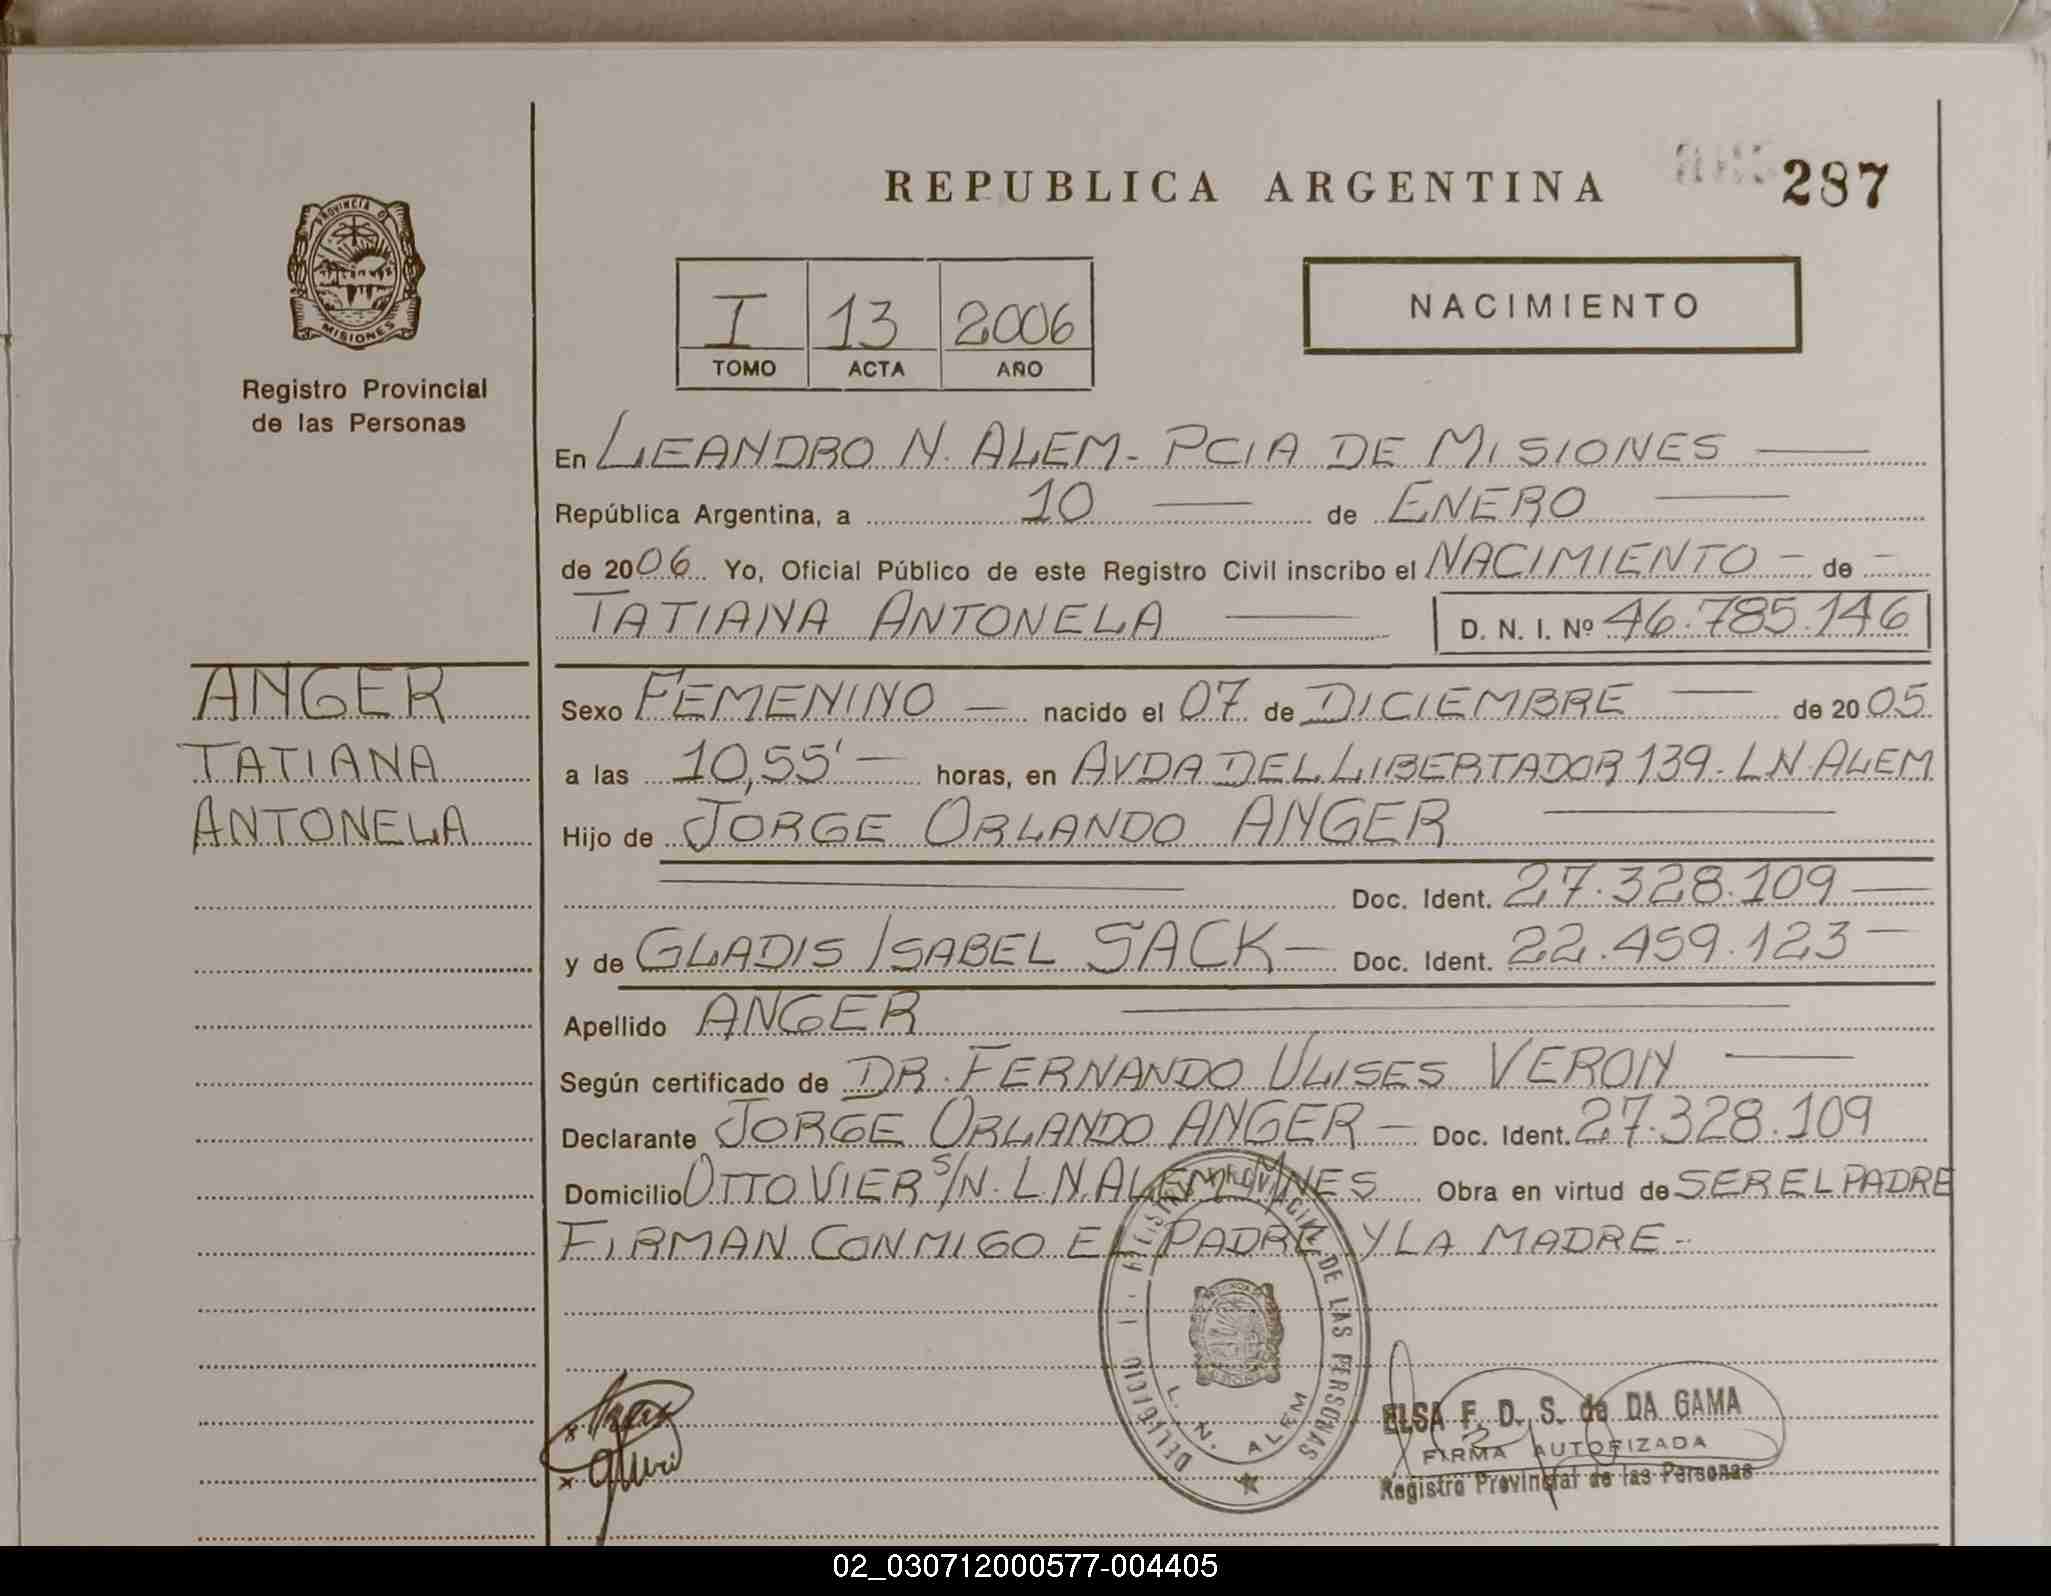 REPUBLICA ARGENTINA
287
PROVINCIA DE MISIONES
Registro Provincial
de las Personas
I 13 2006
TOMO ACTA AÑO
NACIMIENTO
En LEANDRO N. ALEM - PCIA DE MISIONES
República Argentina, a 10 de ENERO
de 2006 Yo, Oficial Público de este Registro Civil inscribo el NACIMIENTO - de -
TATIANA ANTONELA D. N. I. Nº 46.785.146
ANGER
TATIANA
ANTONELA
Sexo FEMENINO - nacido el 07 de DICIEMBRE de 2005
a las 10,55' - horas, en AVDA DEL LIBERTADOR 139. L N. ALEM
Hijo de JORGE ORLANDO ANGER
Doc. Ident. 27.328.109
y de GLADIS ISABEL SACK - Doc. Ident. 22.459.123 -
Apellido ANGER
Según certificado de DR. FERNANDO ULISES VERON
Declarante JORGE ORLANDO ANGER - Doc. Ident. 27.328.109
Domicilio OTTO VIER S/N. L.N. ALEM MNES Obra en virtud de SER EL PADRE
FIRMAN CONMIGO EL PADRE Y LA MADRE -
DE LAS PERSONAS
L. N. ALEM
ELSA F. D. S. de DA GAMA
FIRMA AUTORIZADA
Registro Provincial de las Personas
02_030712000577-004405